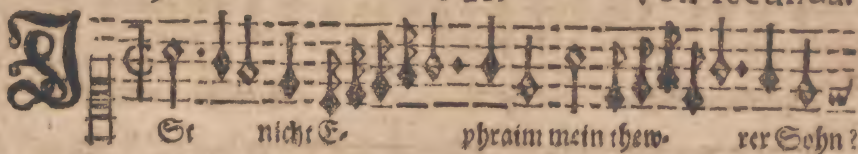 JSt nicht E- phraim mein thew- rer Sohn?